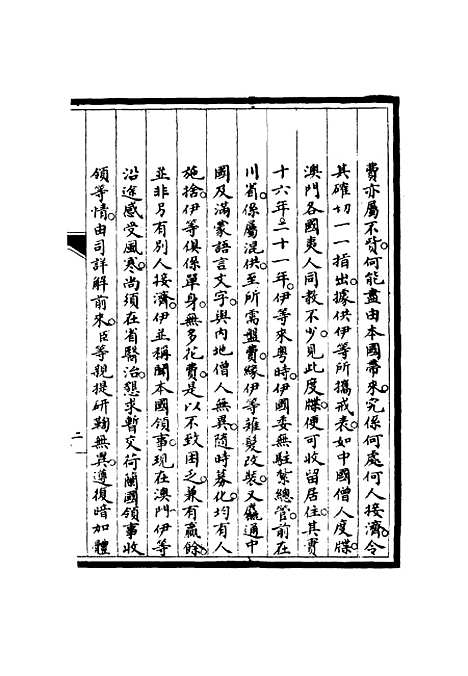 費亦屬不貲。何能盡由本國帶來。究係何處何人接濟。令
其確切一一指出。據供伊等所攜戒表。如中國僧人度牒。
澳門各國夷人同教不少。見此度牒。便可收留居住。其實
十六年。二十一年。伊等來粵時。伊國委無駐紮總管。前在
川省。係屬混供。至所需盤費。緣伊等薙髮改裝。又藴通中
國及滿蒙語言文字。與內地僧人無異。隨時募化。均有人
施捨。伊等俱係單身。無多花費。是以不致困乏。兼有贏餘。
並非另有別人接濟。伊並稱聞本國領事。現在澳門。伊等
沿途感受風寒。尚須在省醫治。懇求暫交荷蘭國領事收
領等情。由司詳解前來。臣等親提研鞫無異。遵復暗加體
二